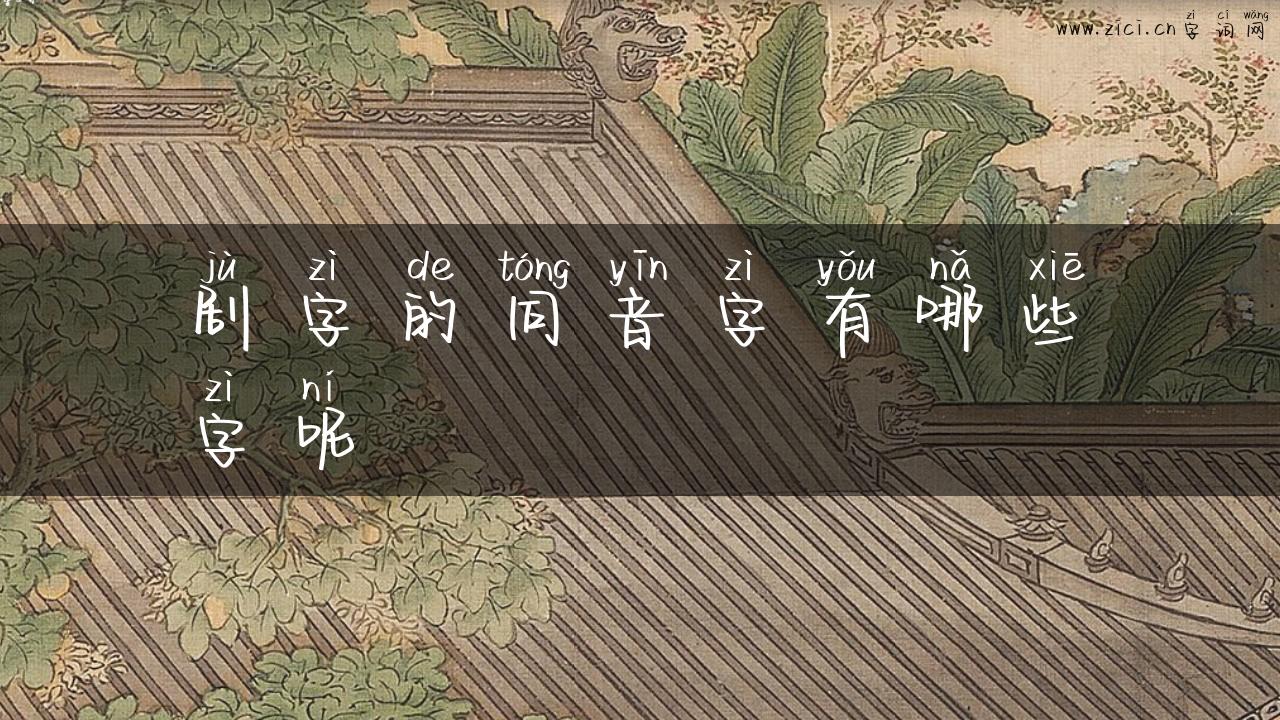 zì cí wǎng
www.zici.cn 字 词 网
jù zì de tóng yīn zì yǒu nǎ xiē
剧 字 的 同 音 字 有 哪 些
zì ní
字 呢